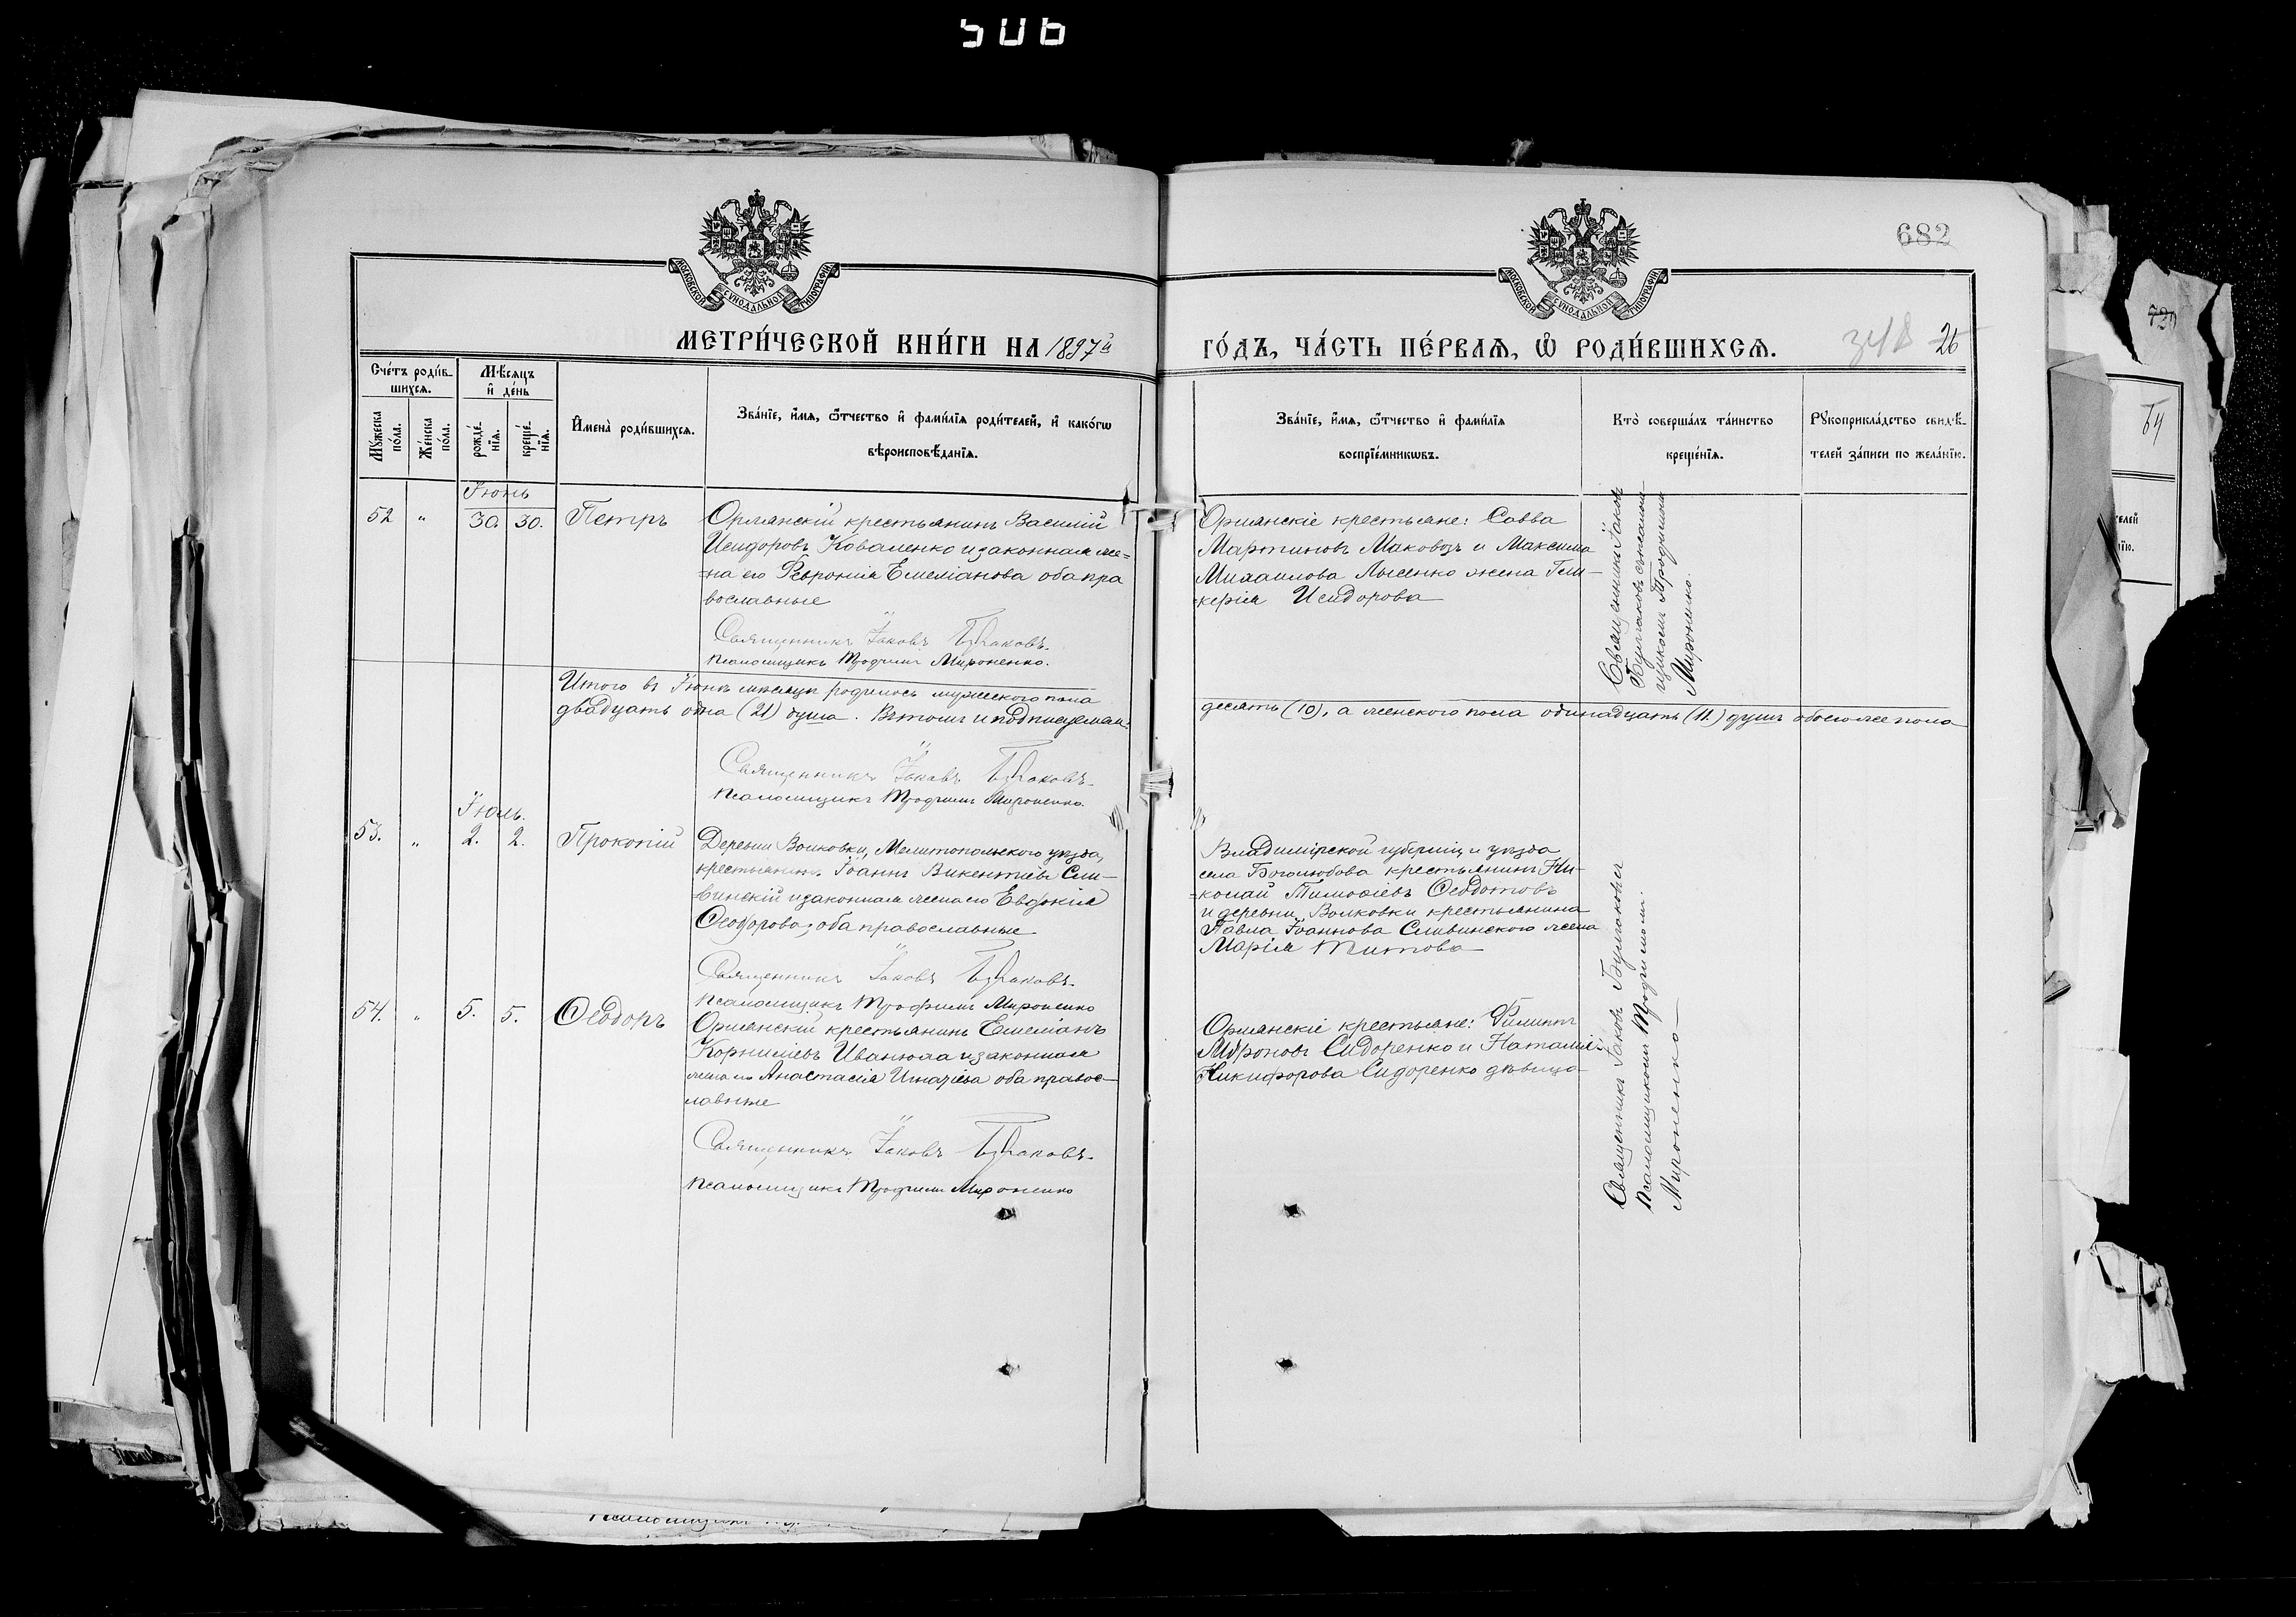 506
682
МОСКОВСКОЙ СѴНОДАЛЬНОЙ ТИПОГРАФІИ
МОСКОВСКОЙ СѴНОДАЛЬНОЙ ТИПОГРАФІИ
МЕТРИ́ЧЕСКОЙ КНИ́ГИ НА 1897й
ГО́ДЪ, ЧА́СТЬ ПЕ́РВАѦ, Ѡ РОДИ́ВШИХСѦ.
348 26
Сче́тъ роди́в-
шихсѧ.
Мѣ́сѧцъ
и҆ де́нь
Мꙋ́жеска
по́ла.
Же́нска
по́ла.
рожде́-
нїѧ.
креще́-
нїѧ.
И҆мена̀ роди́вшихсѧ.
Зва́нїе, и҆́мѧ, ѻ҆́тчество и҆ фами́лїѧ роди́телей, и҆ како́гѡ
вѣроисповѣ́данїѧ.
Зва́нїе, и҆́мѧ, ѻ҆́тчество и҆ фами́лїѧ
воспрїе́мникѡвъ.
Кто̀ соверша́лъ та́инство
креще́нїѧ.
Рꙋкоприкла́дство свидѣ́-
телей за́писи по жела́нїю.
Іюнь
52 " 30. 30. Петръ
Орлянскій крестьянинъ Василій
Исидоровъ Коваленко и законная же=
=на его Феѵронія Емеліанова оба пра
вославные
Священникъ Іаковъ Булгаковъ.
Псаломщикъ Трофимъ Мироненко.
Орлянскіе крестьяне: Савва
Мартиновъ Маковозъ и Максима
Михаилова Лысенко жена Гли-
=керія Исидорова
Священникъ Іаковъ
Булгаковъ съ псалом-
щикомъ Трофимомъ
Мироненко.
Итого въ Іюнѣ мѣсяцѣ родилось мужескаго пола
десять (10), а женскаго пола одинадцать (11.) душъ обоего же пола
двадцать одна (21) душа. Въ томъ и подписуемся:
Священникъ Іаковъ Булгаковъ.
Псаломщикъ Трофимъ Мироненко.
Іюль.
53. " 2. 2. Прокопій
Деревни Волковки, Мелитопольского уѣзда,
крестьянинъ Іоаннъ Викентіевъ Сли-
=винскій и законная жена его Евдокія
Ѳеодорова, оба православные.
Священникъ Іаковъ Булгаковъ.
Псаломщикъ Трофимъ Мироненко
Владимірской губерніи и уѣзда
села Боголюбова крестьянинъ Ни-
=колай Тимоѳіевъ Ѳеодотовъ
и деревни Волковки крестьянина
Павла Іоаннова Сливинского жена
Марія Титова
54. " 5. 5. Ѳеодоръ
Орлянскій крестьянинъ Емеліанъ
Корниліевъ Иванюла и законная
жена его Анастасія Игнатіева оба правос-
лавные
Священникъ Іаковъ Булгаковъ.
Псаломщикъ Трофимъ Мироненко
Орлянскіе крестьяне: Филиппъ
Мѵроновъ Сидоренко и Наталія
Никифорова Сидоренко дѣвица
Священникъ Іаковъ Булгаковъ съ
Псаломщикомъ Трофимомъ
Мироненко